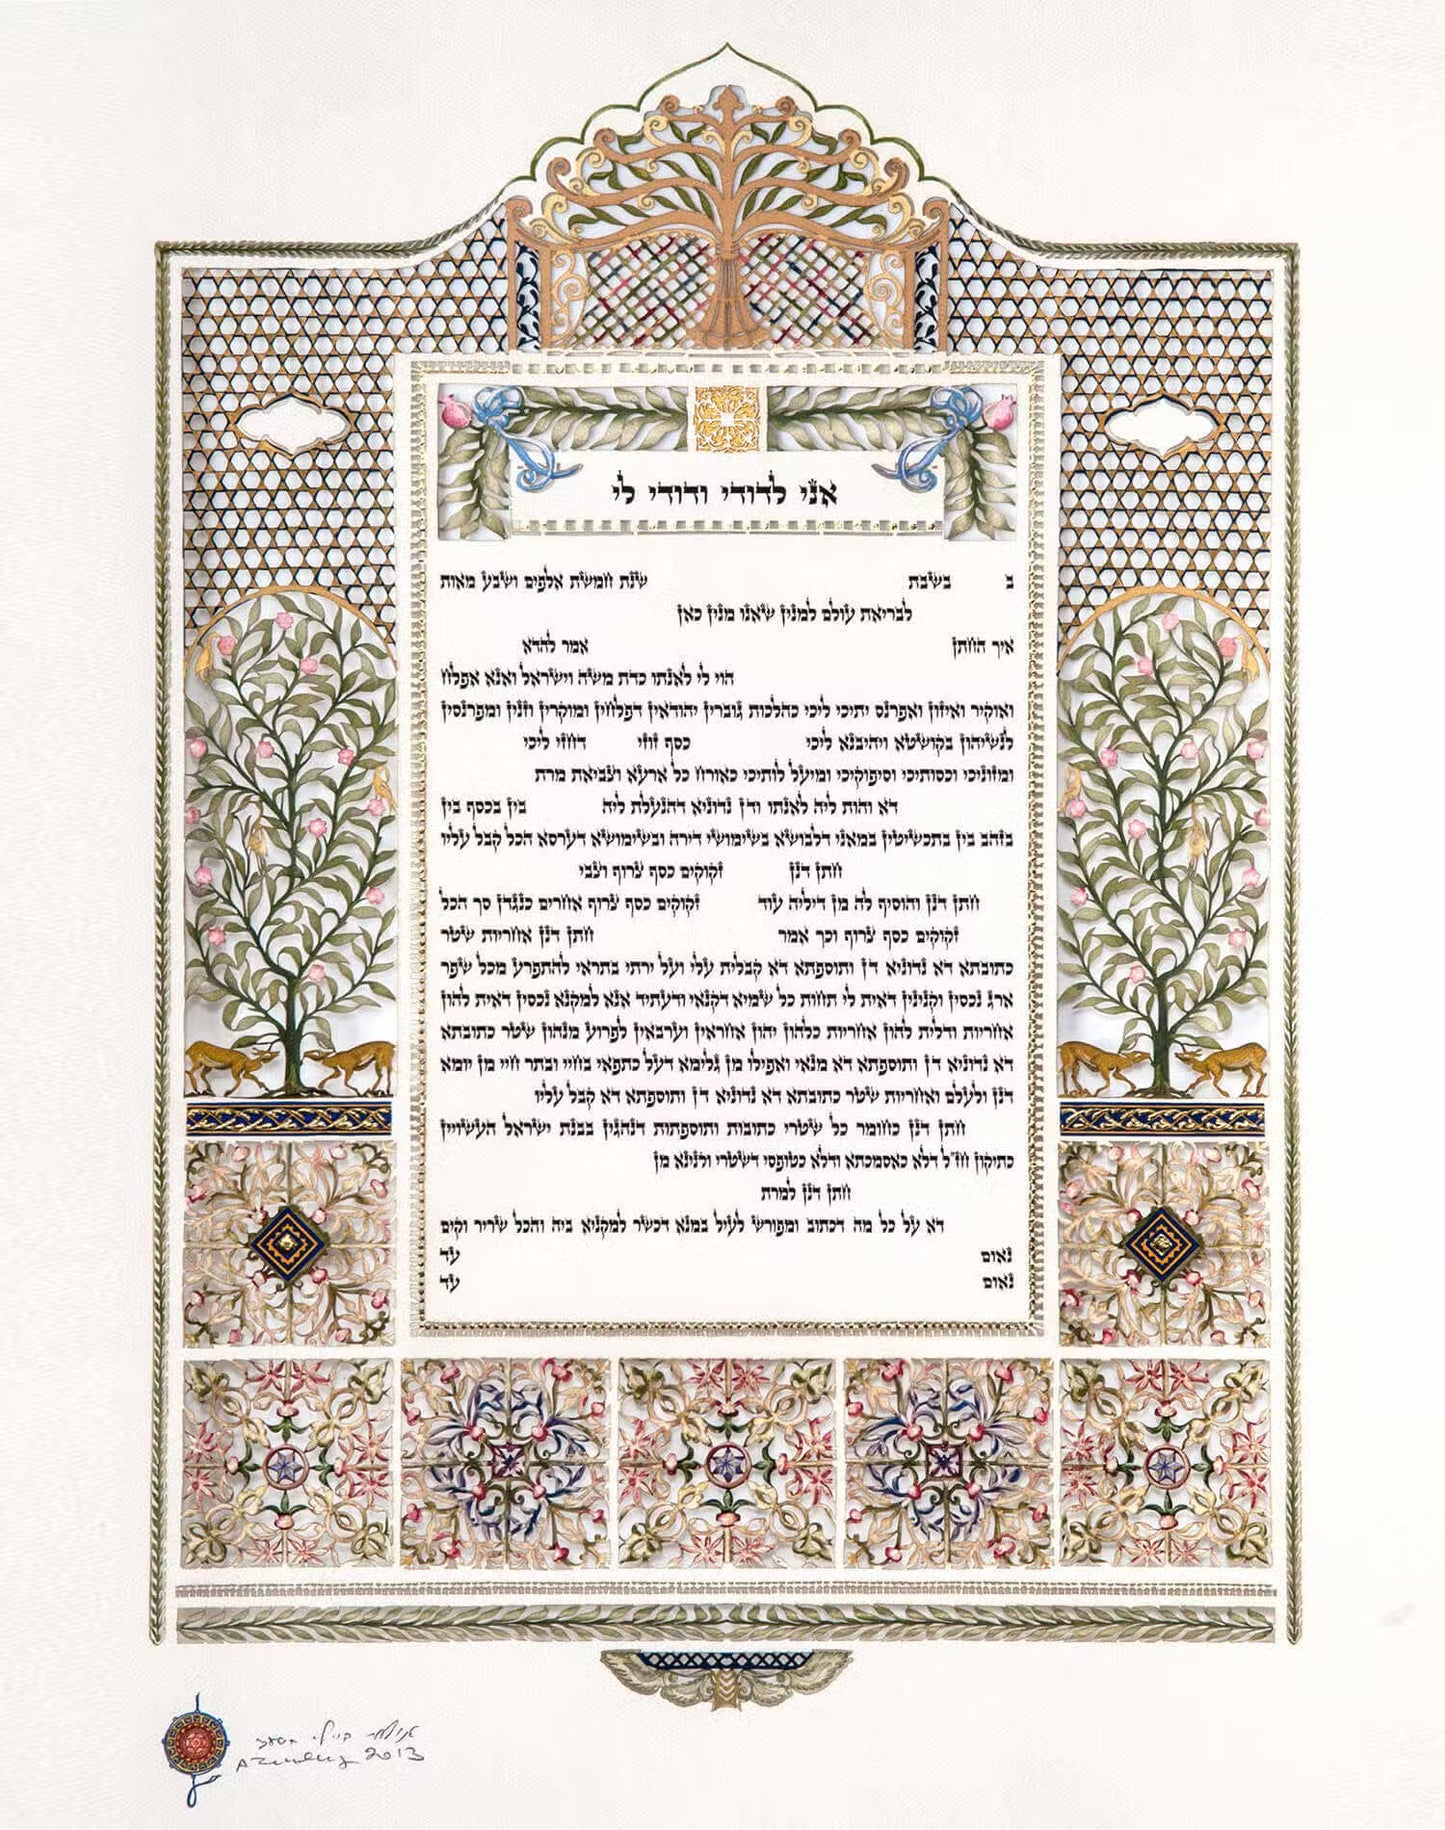 אני לדודי ודודי לי
ב בשבת שנת חמשת אלפים ושבע מאות
לבריאת עולם למנין שאנו מנין כאן
איך החתן אמר להדא
הוי לי לאנתו כדת משה וישראל ואנא אפלח
ואוקיר ואיזון ואפרנס יתיכי ליכי כהלכות גוברין יהודאין דפלחין ומוקרין וזנין ומפרנסין
לנשיהון בקושטא ויהיבנא ליכי כסף זוזי דחזי ליכי
ומזוניכי וכסותיכי וסיפוקיכי ומיעל לותיכי כאורח כל ארעא וצביאת מרת
דא והות ליה לאנתו ודן נדוניא דהנעלת ליה בין בכסף בין
בזהב בין בתכשיטין במאני דלבושא בשימושי דירה ובשימושא דערסא הכל קבל עליו
חתן דנן זקוקים כסף צרוף וצבי
חתן דנן והוסיף לה מן דיליה עוד זקוקים כסף צרוף אחרים כנגדן סך הכל
זקוקים כסף צרוף וכך אמר חתן דנן אחריות שטר
כתובתא דא נדוניא דן ותוספתא דא קבלית עלי ועל ירתי בתראי להתפרע מכל שפר
ארג נכסין וקנינין דאית לי תחות כל שמיא דקנאי ודעתיד אנא למקנא נכסין דאית להון
אחריות ודלית להון אחריות כלהון יהון אחראין וערבאין לפרוע מנהון שטר כתובתא
דא נדוניא דן ותוספתא דא מנאי ואפילו מן גלימא דעל כתפאי בחיי ובתר חיי מן יומא
דנן ולעלם ואחריות שטר כתובתא דא נדוניא דן ותוספתא דא קבל עליו
חתן דנן כחומר כל שטרי כתובות ותוספתות דנהגין בבנת ישראל העשויין
כתיקון חז״ל דלא כאסמכתא ודלא כטופסי דשטרי וקנינא מן
חתן דנן למרת
דא על כל מה דכתוב ומפורש לעיל במנא דכשר למקניא ביה והכל שריר וקים
נאום עד
נאום עד
2013